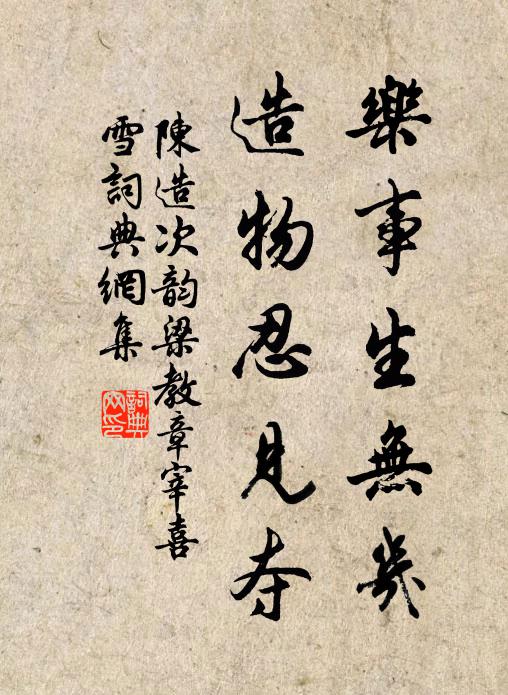 樂事生無幾
造物忍見夺
陳造次韵梁教章宰喜
雪詞典網集
詞典网印